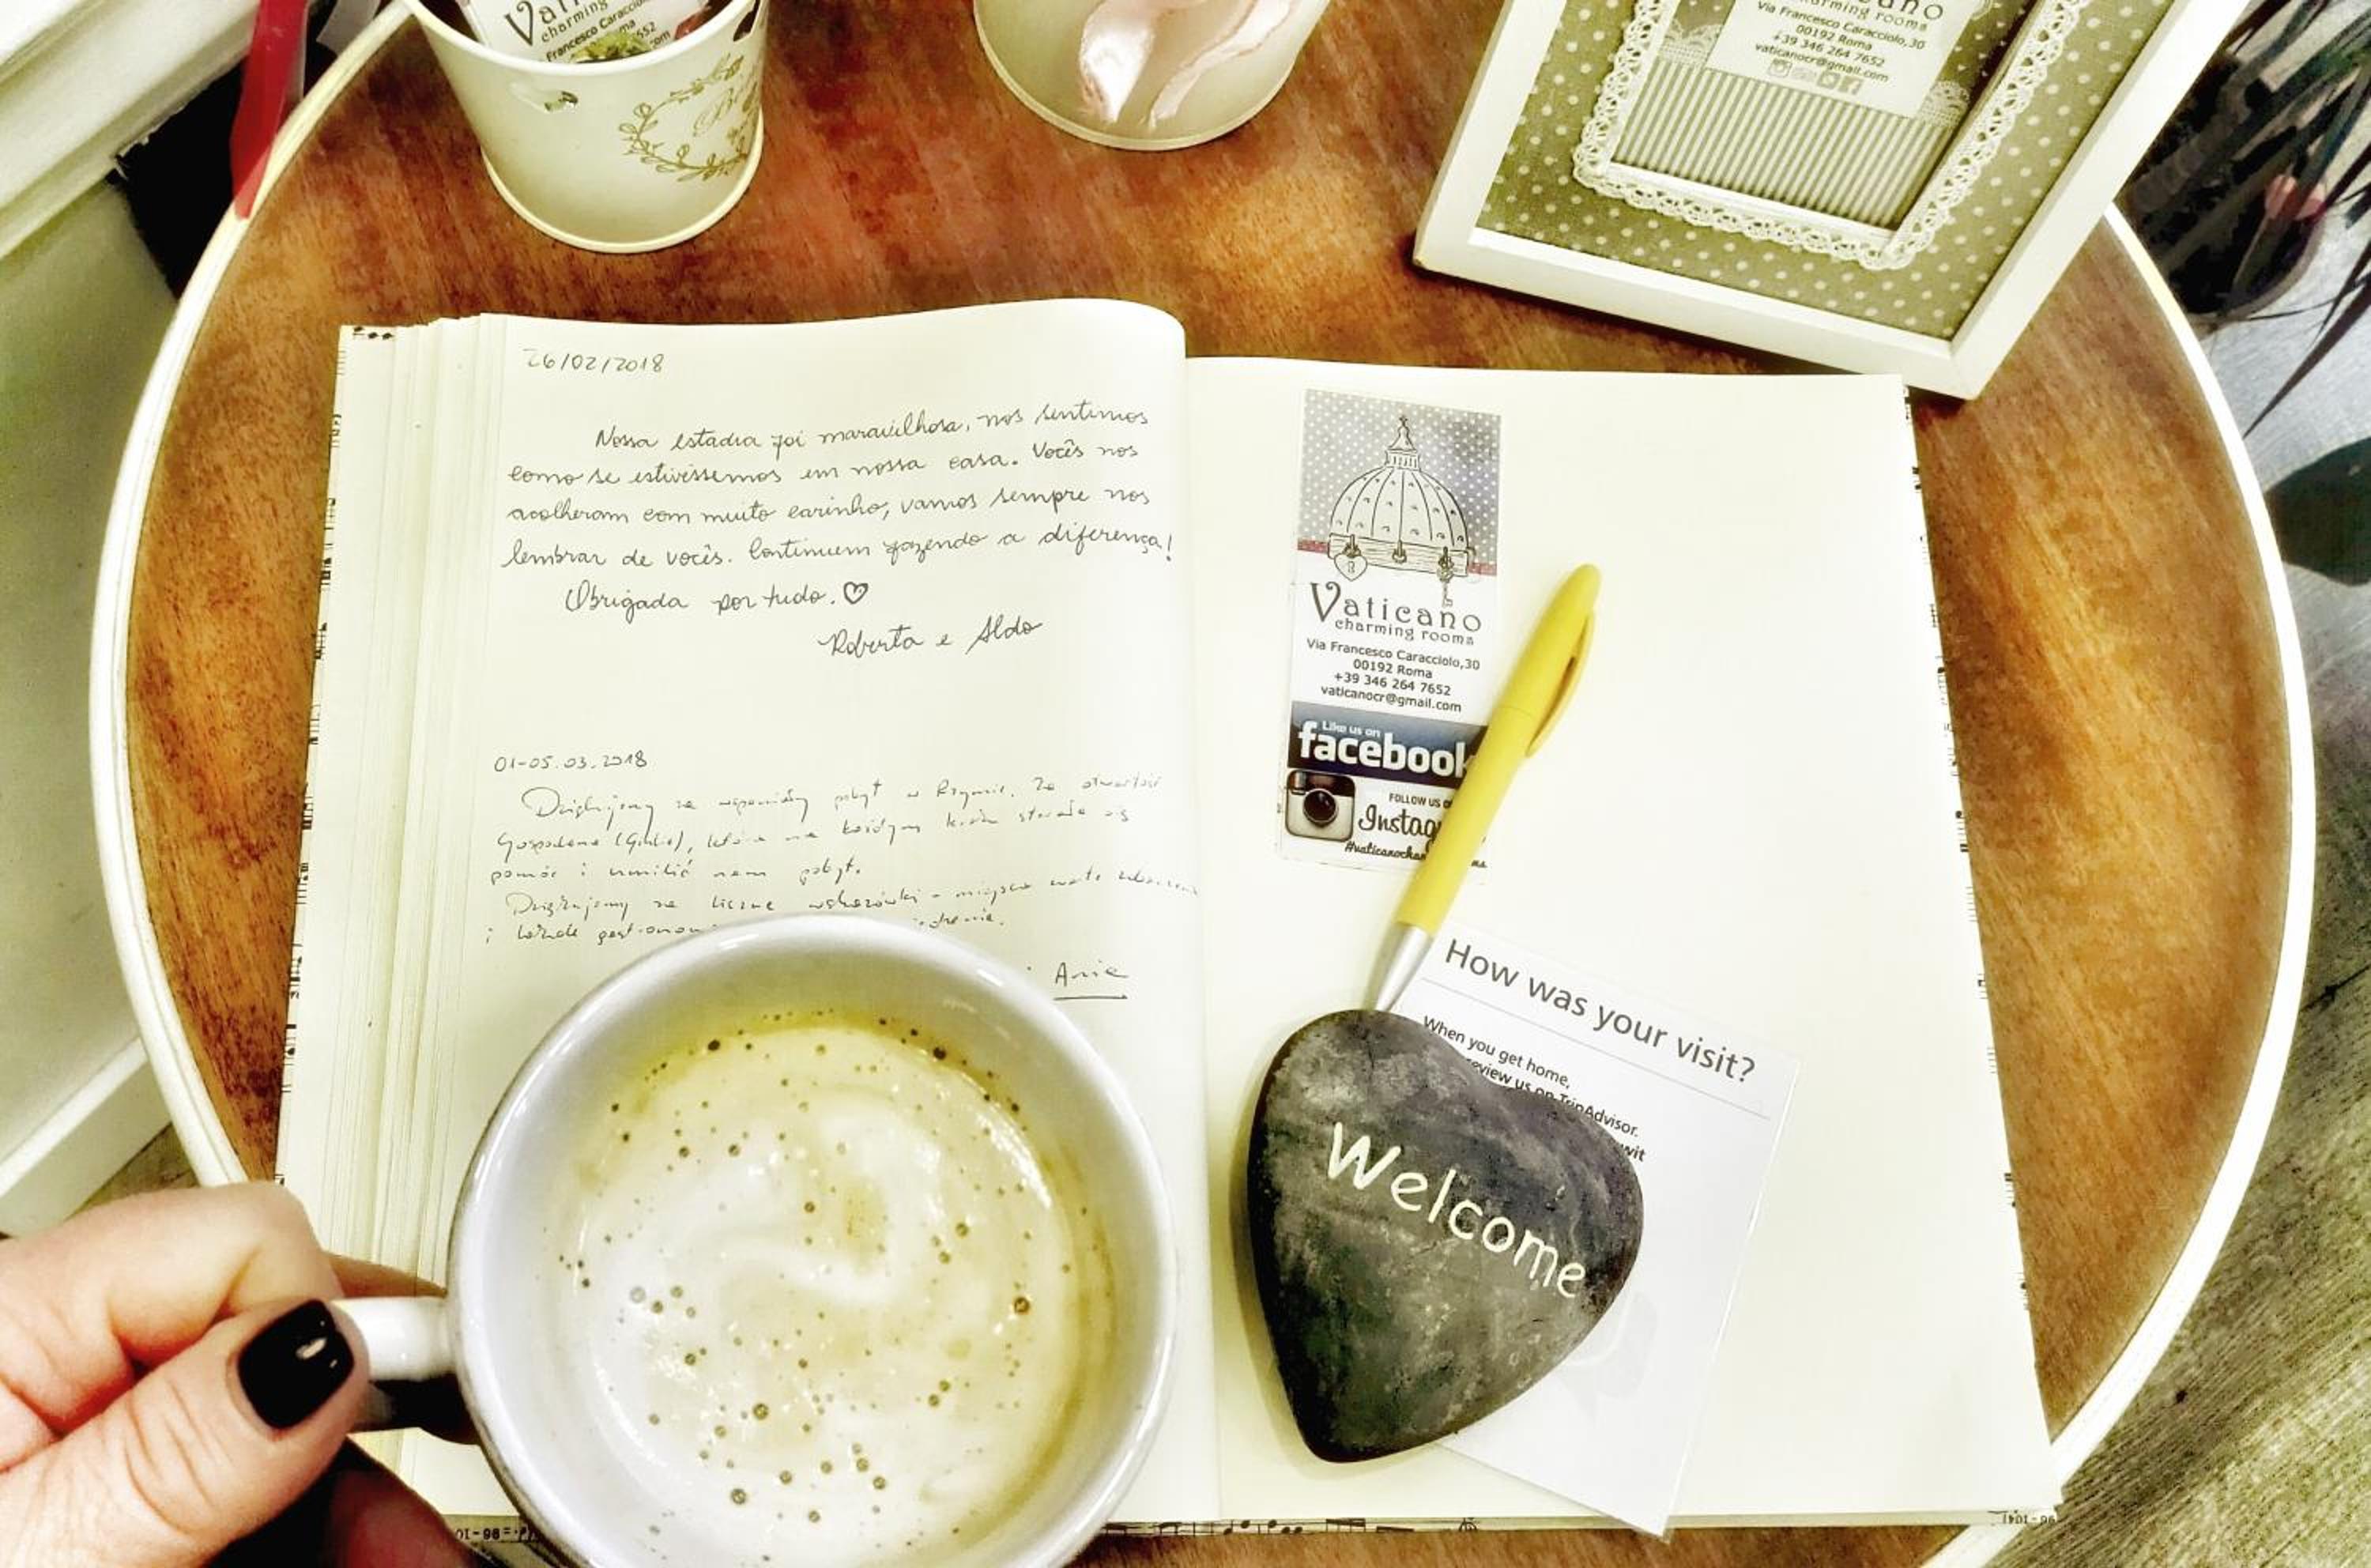 Vati
charming
Francesco Caracciolo
charming rooms
Via Francesco Caracciolo,30
00192 Roma
+39 346 264 7652
vaticanocr@gmail.com
26/02/2018
Nossa estadia foi maravilhosa, nos sentimos
como se estivéssemos em nossa casa. Vocês nos
acolheram com muito carinho, vamos sempre nos
lembrar de vocês. Continuem fazendo a diferença!
Obrigada por tudo.
Roberta e Aldo
01-05.03.2018
Dziękujemy za wspaniały pobyt w Rzymie. Za otwartość
Gospodyni (Giulia), która na każdym kroku starała się
pomóc i umilić nam pobyt.
Dziękujemy za liczne wskazówki - miejsca warte zobaczenia
i
Ania
Vaticano
charming rooms
Via Francesco Caracciolo,30
00192 Roma
+39 346 264 7652
vaticanocr@gmail.com
Like us on
facebook
FOLLOW US
Instag
How was your visit?
When you get home,
review us on TripAdvisor.
Welcome